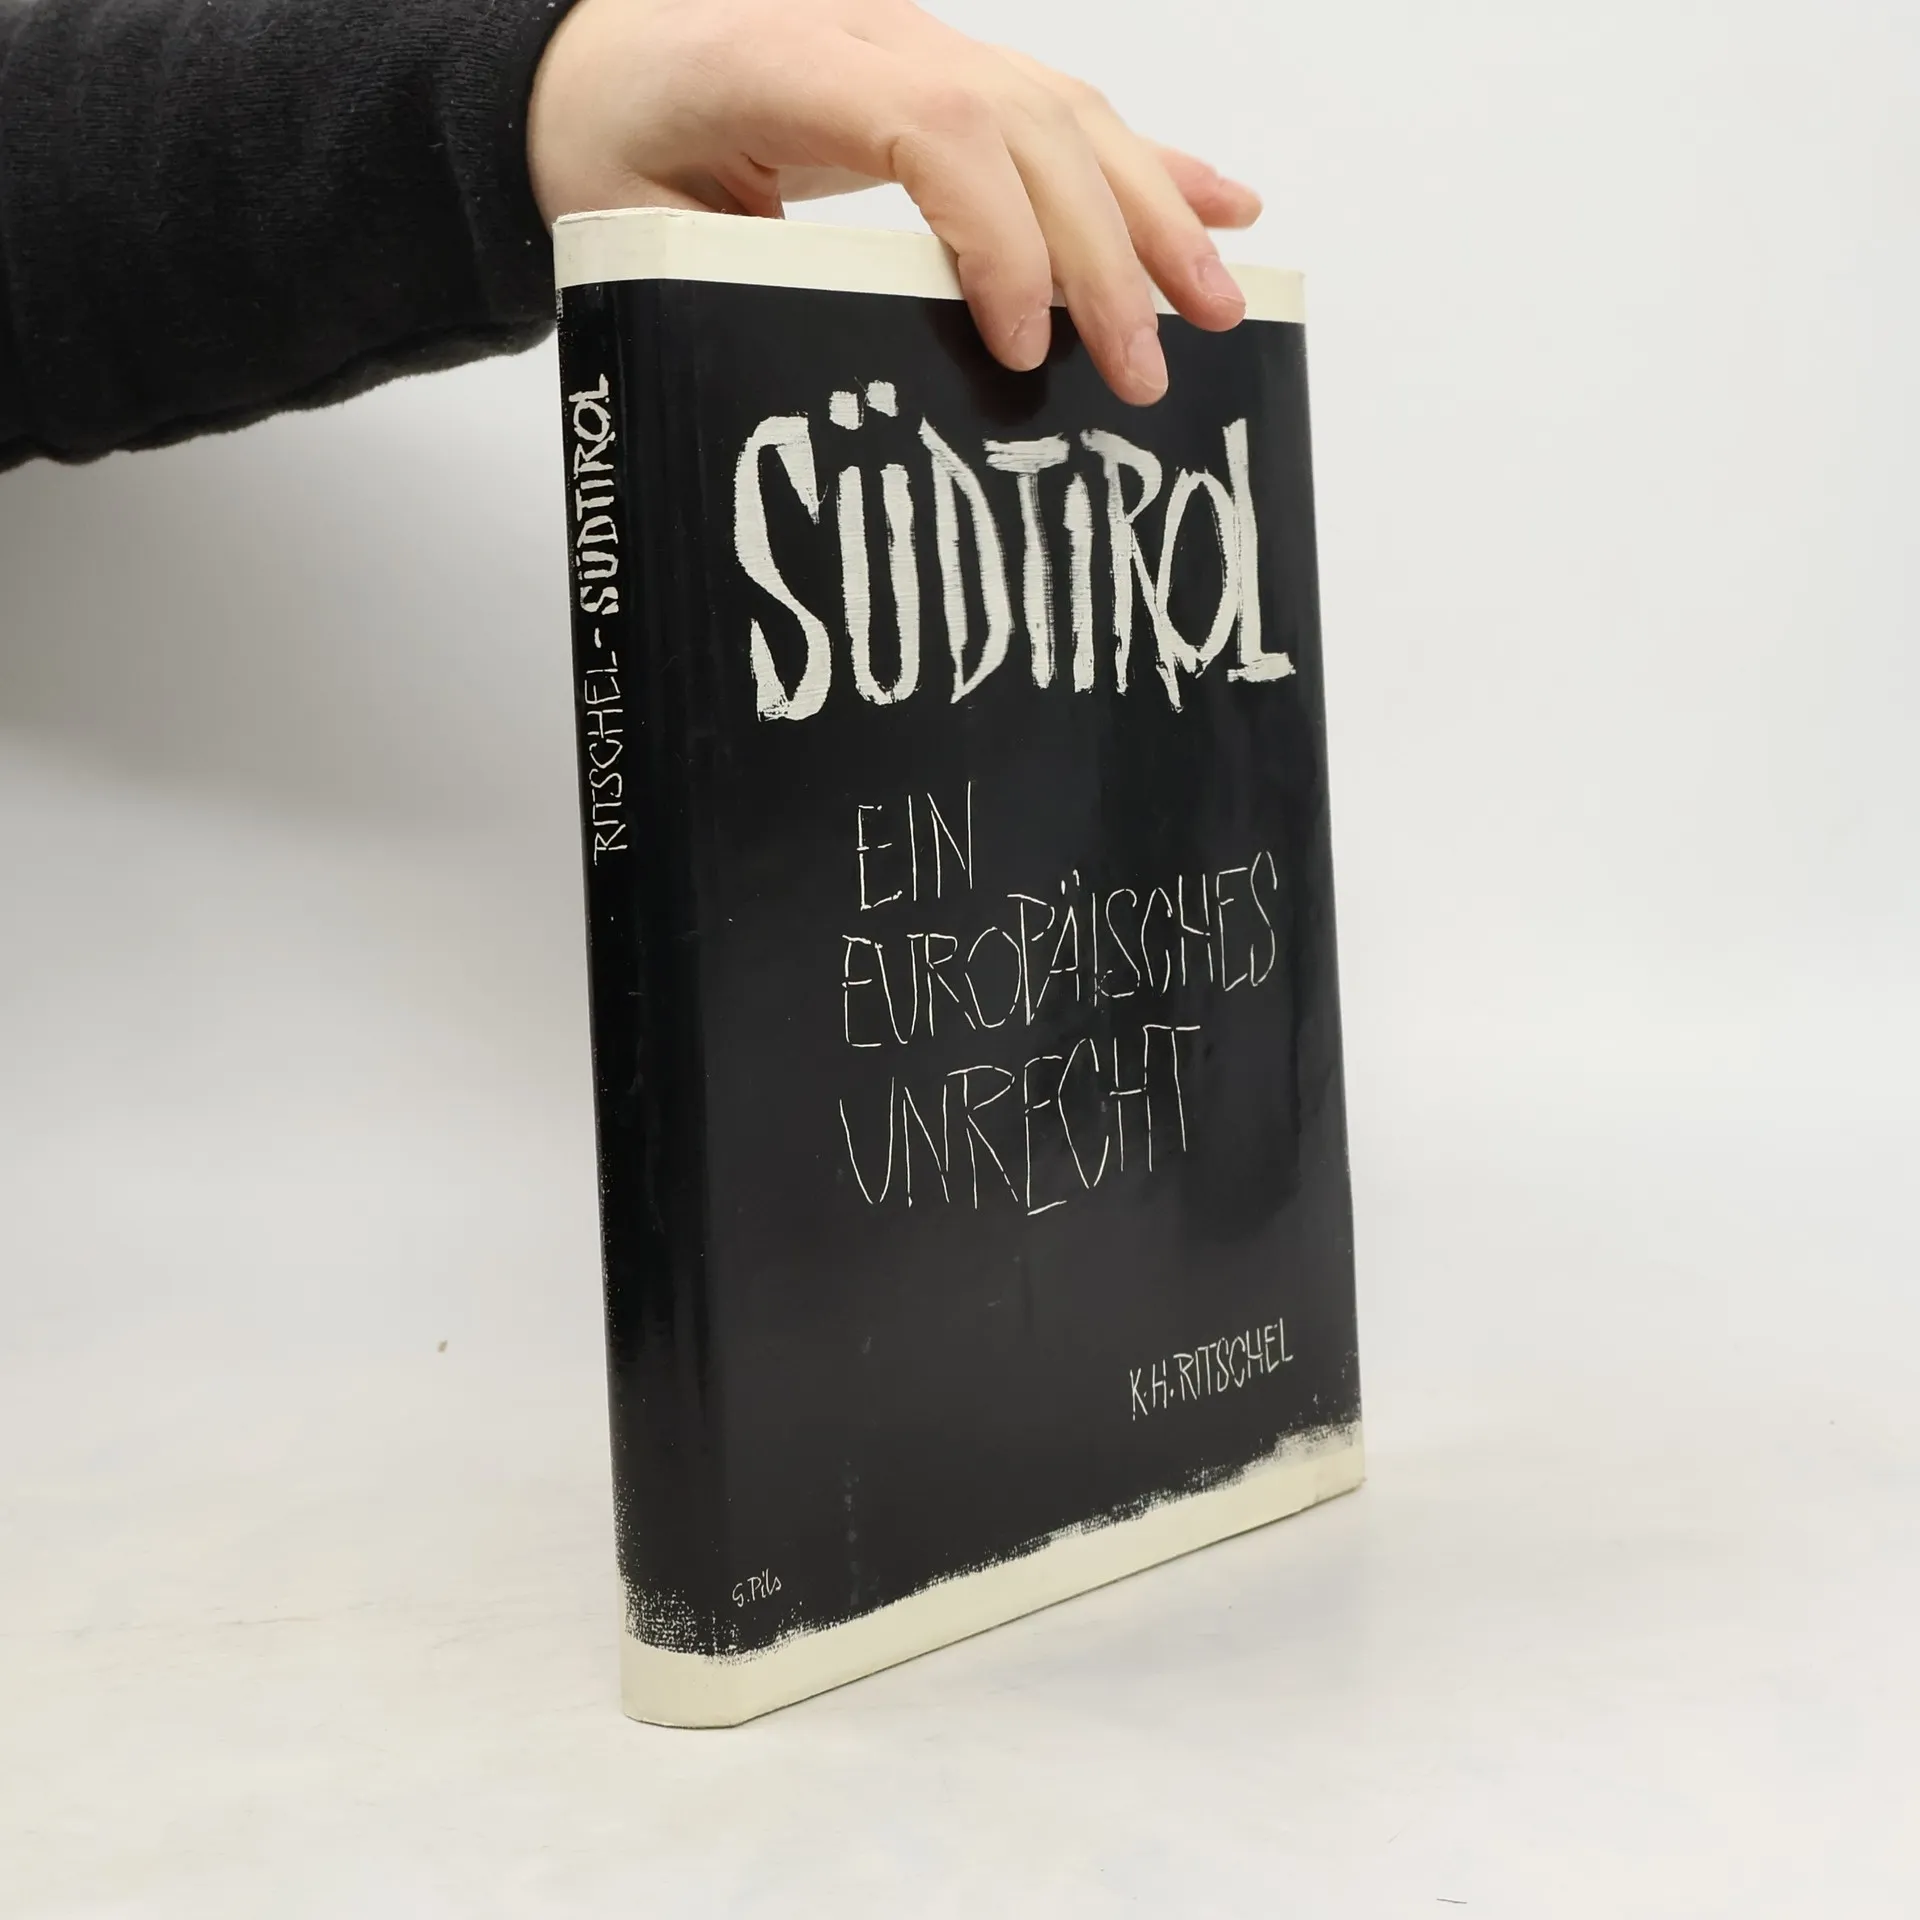 RITSCHEL - SÜDTIROL
SÜDTIROL
EIN
EUROPÄISCHES
UNRECHT
K.H.RITSCHEL
G.Pils